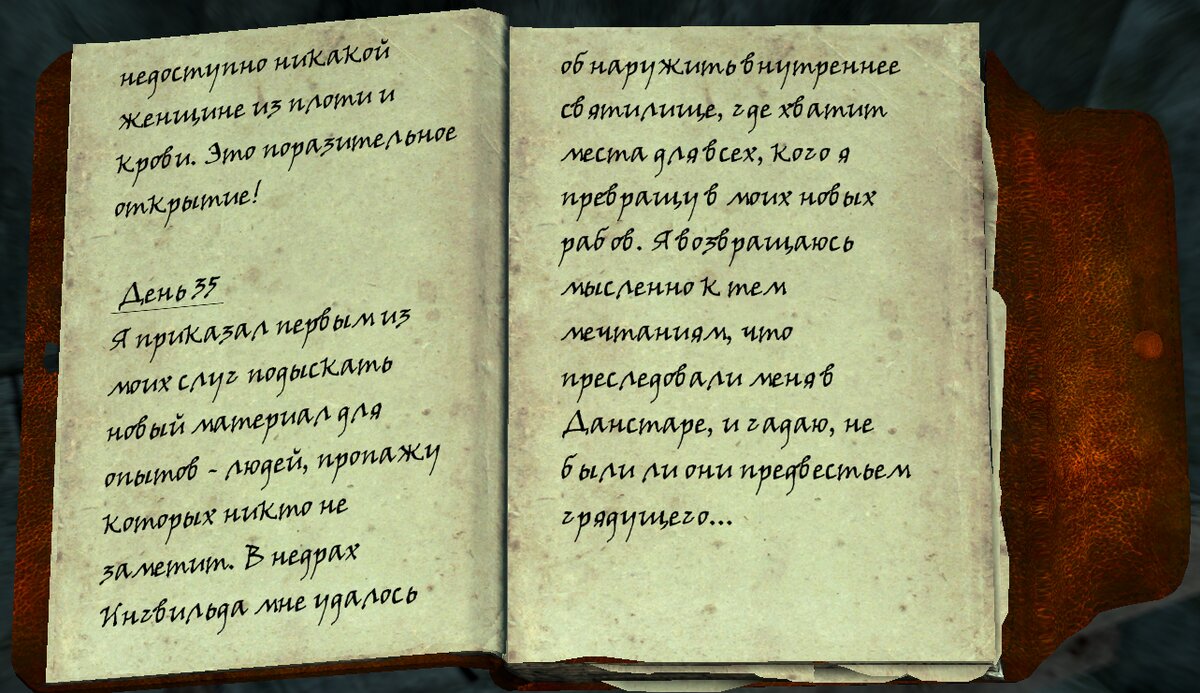 недоступно никакой
женщине из плоти и
крови. Это поразительное
открытие!
День 35
Я приказал первым из
моих слуг подыскать
новый материал для
опытов - людей, пропажу
которых никто не
заметит. В недрах
Ингвильда мне удалось
обнаружить внутреннее
святилище, где хватит
места для всех, кого я
превращу в моих новых
рабов. Я возвращаюсь
мысленно к тем
мечтаниям, что
преследовали меня в
Данстаре, и гадаю, не
были ли они предвестьем
грядущего...